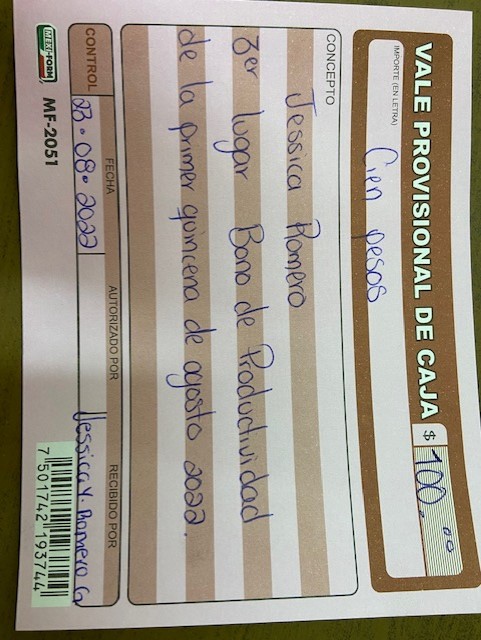 VALE PROVISIONAL DE CAJA $ 100.00
IMPORTE (EN LETRA)
Cien pesos
CONCEPTO
Jessica Romero
3er lugar Bono de Productividad
de la primer quincena de agosto 2022.
CONTROL FECHA AUTORIZADO POR RECIBIDO POR
23.08.2022 Jessica Y. Romero G
MEXI-FORM MF-2051
7 501742 193744